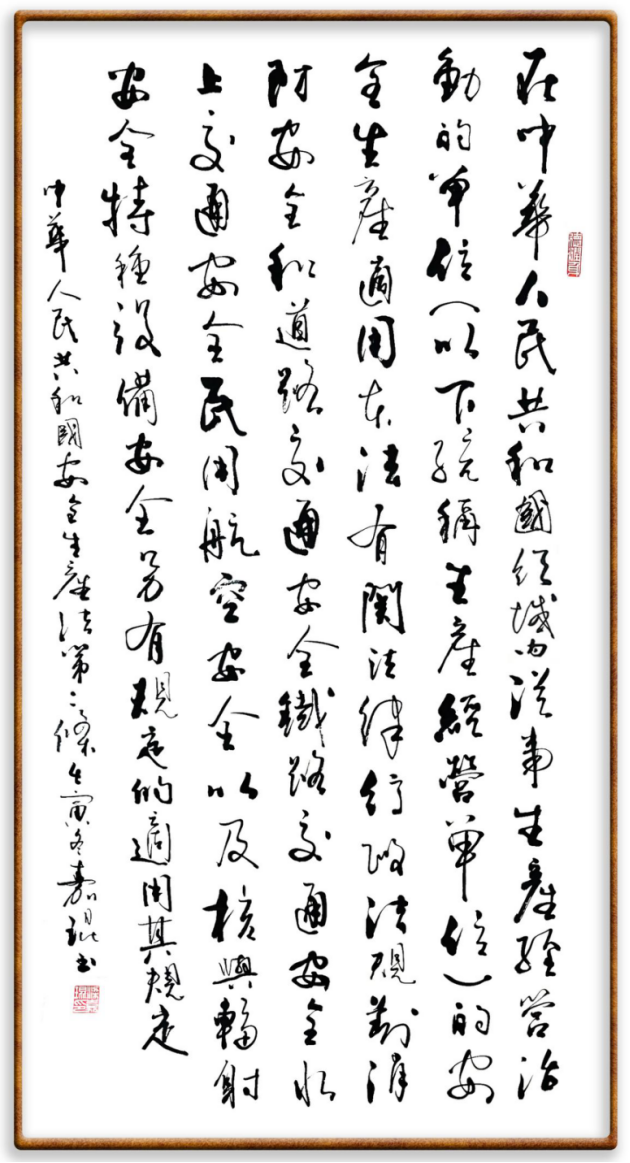 在中華人民共和國領域内從事生產經營活
動的單位（以下統稱生產經營單位）的安
全生產適用本法有關法律行政法規對消
防安全和道路交通安全鐵路交通安全水
上交通安全民用航空安全以及核與輻射
安全特種設備安全另有規定的適用其規定
中華人民共和國安全生產法第二條壬寅冬嘉琨书